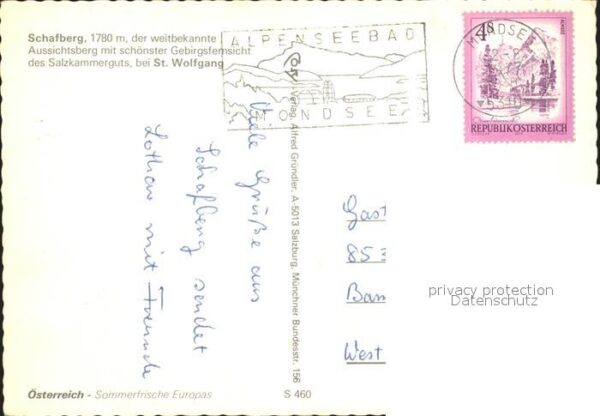 Schafberg, 1780 m, der weitbekannte
Aussichtsberg mit schönster Gebirgsfernsicht
des Salzkammerguts, bei St. Wolfgang
ALPENSEEBAD
MONDSEE
MONDSEE
4 S
REPUBLIK ÖSTERREICH
Verlag Alfred Gründler, A-5013 Salzburg, Münchner Bundesstr. 156
Viele Grüße aus
Schafberg sendet
Lothar mit Freunde
Gast
85
Bam
West
privacy protection
Datenschutz
Österreich - Sommerfrische Europas
S 460